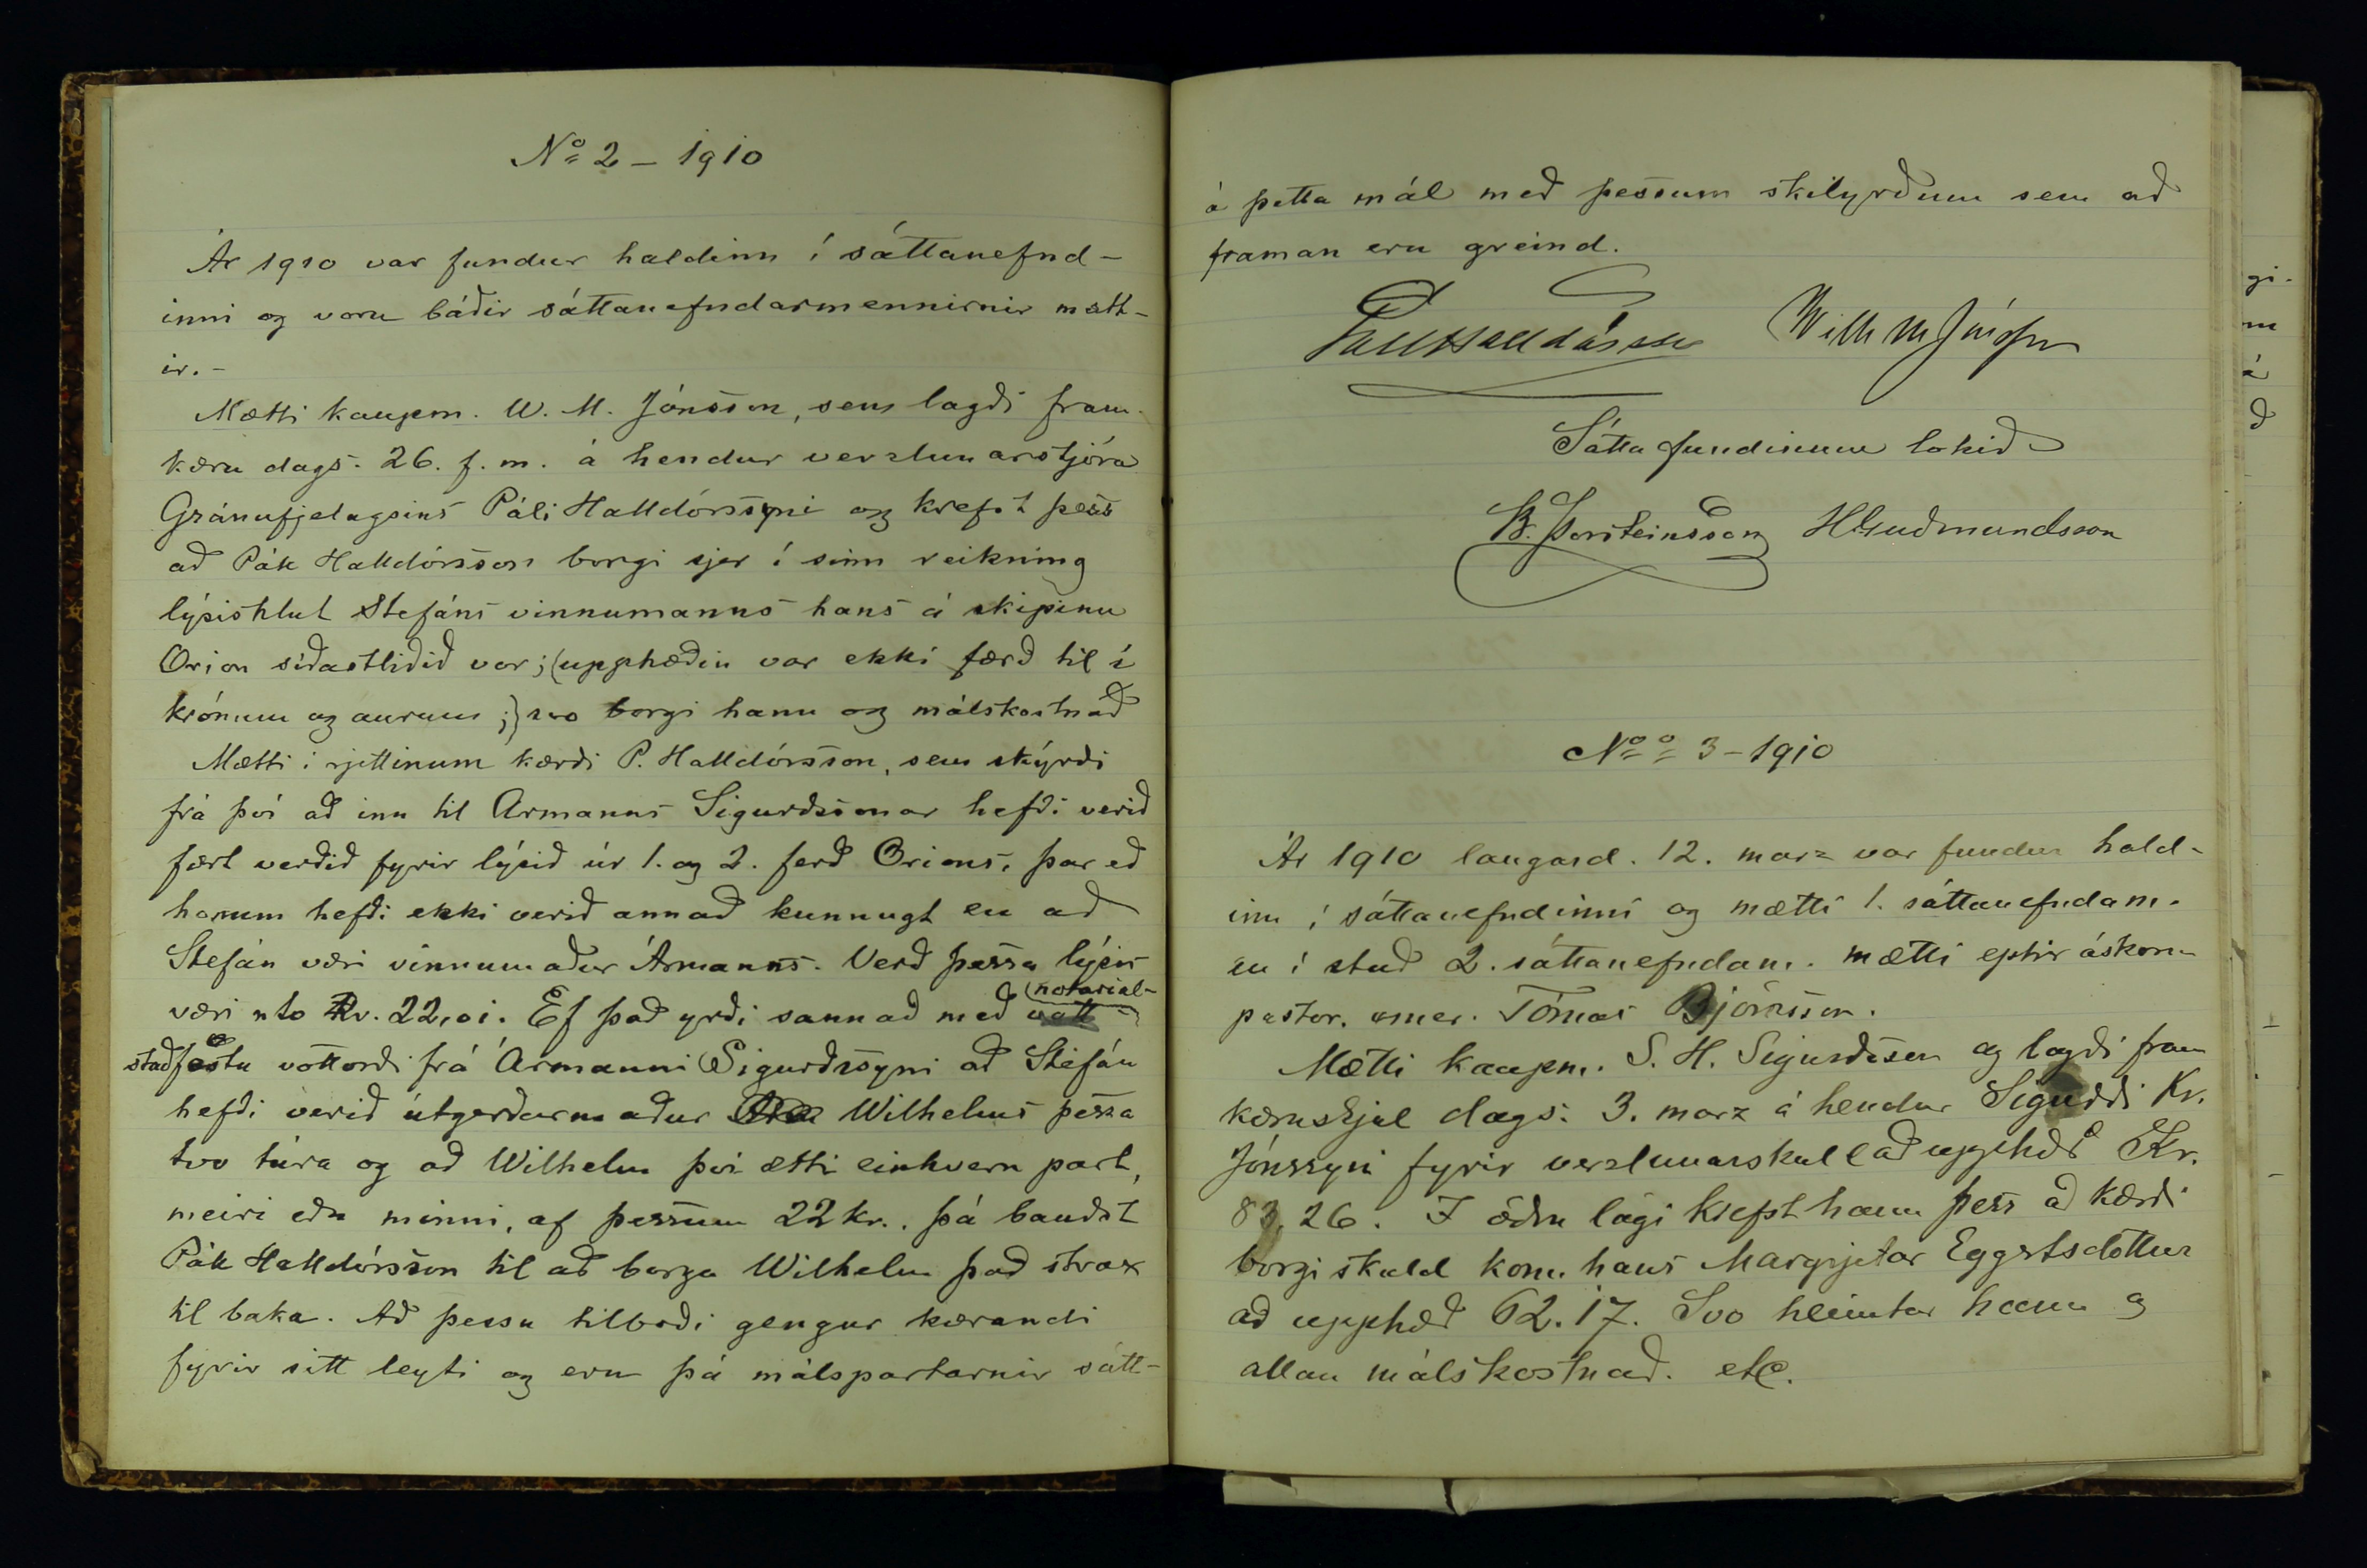 No 2 – 1910
Ár 1910 var fundur haldinn í sáttanefnd-
inni og voru báðir sáttanefndarmennirnir mætt-
ir. –
Mætti kaupm. W. M. Jónsson, sem lagði fram
kæru dags. 26. f. m. á hendur verzlunarstjóra
Gránufjelagsins Páli Halldórssyni og krefst þess
að Páll Halldórsson borgi sjer í sinn reikning
lýsishlut Stefáns vinnumanns hans á skipinu
Orion síðastliðið vor; (upphæðin var ekki færð til í
krónum og aurum ;) svo borgi hann og málskostnað
Mætti í rjettinum kærði P. Halldórsson, sem skýrði
frá því að inn til Armanns Sigurðssonar hefði verið
fært verðið fyrir lýsið úr 1. og 2. ferð Orions, þar eð
honum hefði ekki verið annað kunnugt en að
Stefán væri vinnumaður Ármanns. Verð þessa lýsis
væri nto Kr. 22,01. Ef það yrði sannað með notarial-
staðfestu vottorði frá Ármanni Sigurðssyni að Stefán
hefði verið útgerðarmaður Wilhelms þessa
tvo túra og að Wilhelm því ætti einhvern part,
meiri eða minni, af þessum 22 kr., þá bauðst
Páll Halldórsson til að borga Wilhelm það strax
til baka. Að þessu tilboði gengur kærandi
fyrir sitt leyti og eru þá málspartarnir sátt-
á þetta mál með þessum skilyrðum sem að
framan eru greind.
Páll Halldórsson Wilh M Jónsson
Sátta fundinum lokið
B. Þorsteinsson HGuðmundsson
No 3 – 1910
Ár 1910 laugard. 12. marz var fundur hald-
inn í sáttanefndinni og mætti 1. sáttanefndam.
en í stað 2. sáttanefndam. mætti eptir áskorun
pastor. emer. Tómas Björnsson.
Mætti kaupm. S. H. Sigurðsson og lagði fram
kæruskjal dags. 3. marz á hendur Sigurði Kr.
Jónssyni fyrir verzlunarskuld að upphæð Kr.
83,26. I öðru lagi krefst hann þess að kærði
borgi skuld konu hans Margrjetar Eggertsdóttur
að upphæð 62.17. Svo heimtar hann og
allan málskostnað. etc.
gi-
m
á
ð